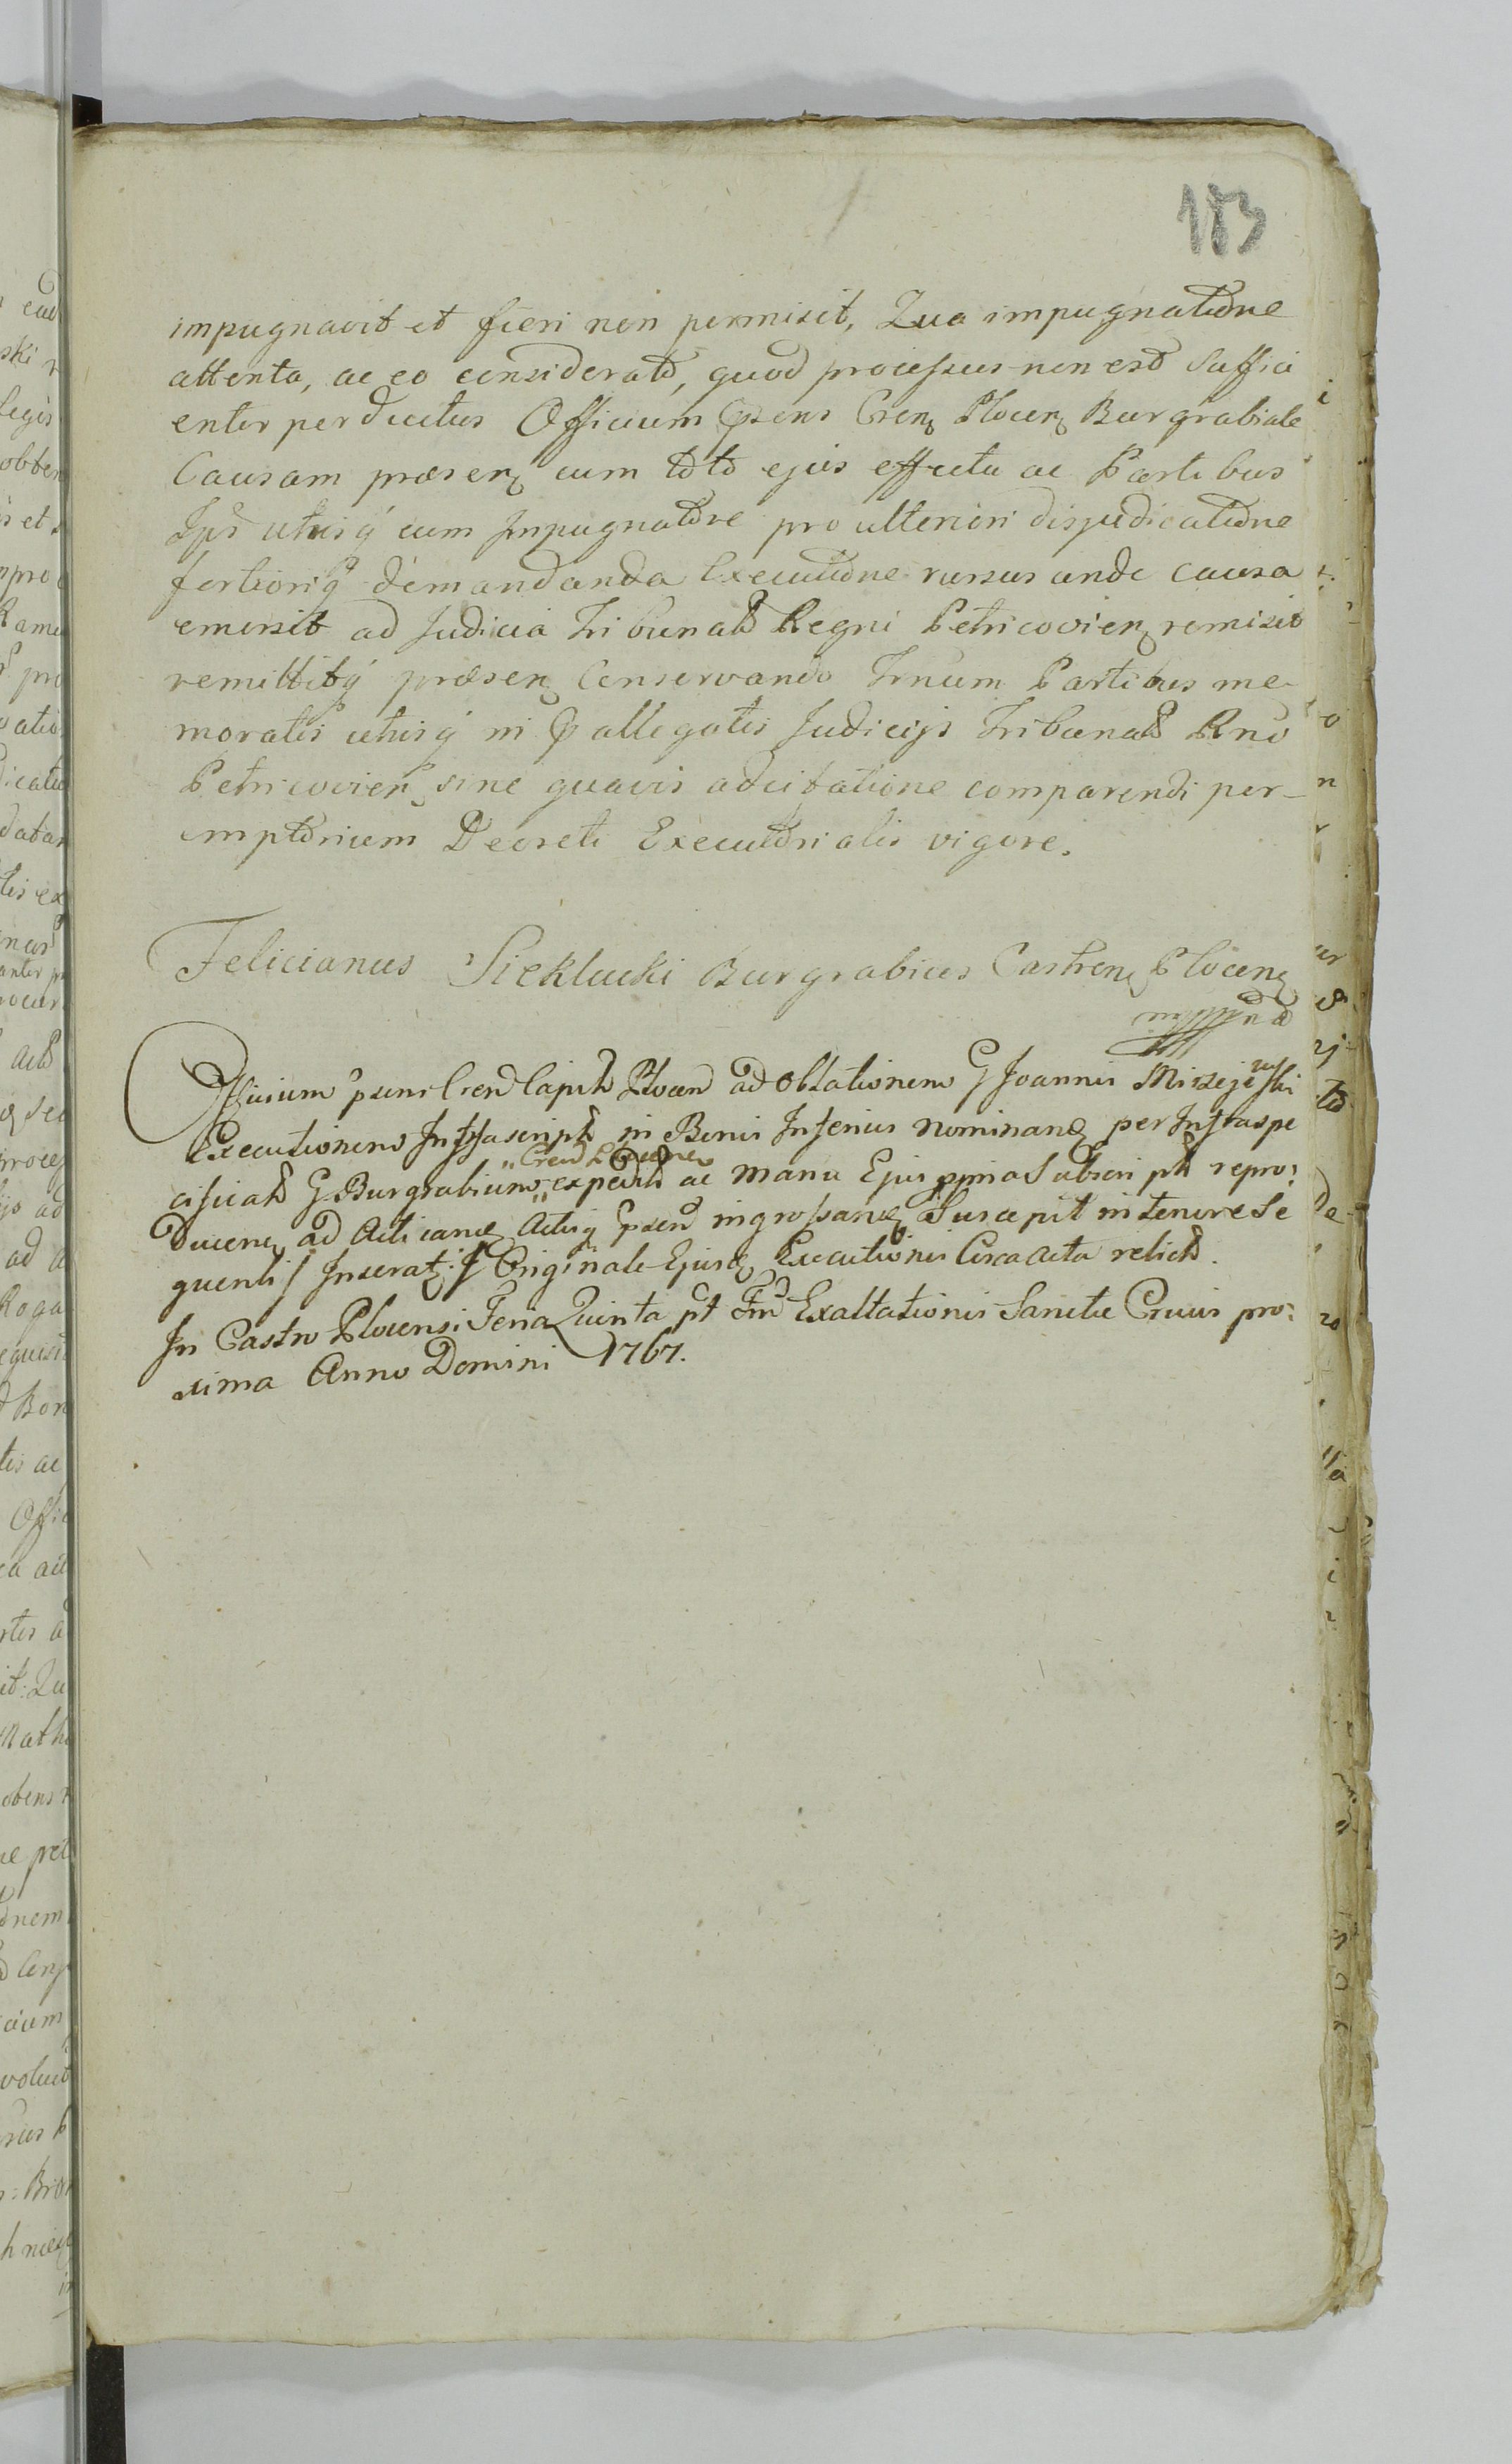 183
impugnavit et fieri non permisit, Qua impugnatione
attenta, ac eo considerato, quod processus non est suffici
enter perductus Officium Psens Cren Plocen Burgrabiale
Causam præsen cum toto ejus effectu ac Partibus
Ips utrisq cum Impugnatore pro ulteriori disjudicatione
fortioriq demandanda Executione rursus unde causa
emersit ad Judicia Tribunals Regni Petricovien remisit
remittitq præsen Conservando Trnum Partibus me-
moratis utrisq in Pallegatis Judicijs Tribunals Rni
Petricovien sine quavis adcitatione comparendi per-
emptorium Decreti Executorialis vigore.
Felicianus Sieklucki Burgrabius Castren Plocen
mppnd
Officium psens Cren Capit Plocen ad oblationem G Joannis Mirzejewski
Executionem Infrascript in Bonis Inferius nominan per Infraspe
cificat G Burgrabium „Cren Plocen„ expedit ac manu Ejus ppria Subscript repro:
ducen ad Acticand Actisq psen ingrossand Suscepit in tenore Se
quenti / Inserat: / Originale Ejusd Executionis Circa Acta relict.
In Castro Plocensi Feria Quinta pt Fm Exaltationis Sanctæ Crucis pro:
xima Anno Domini 1767.